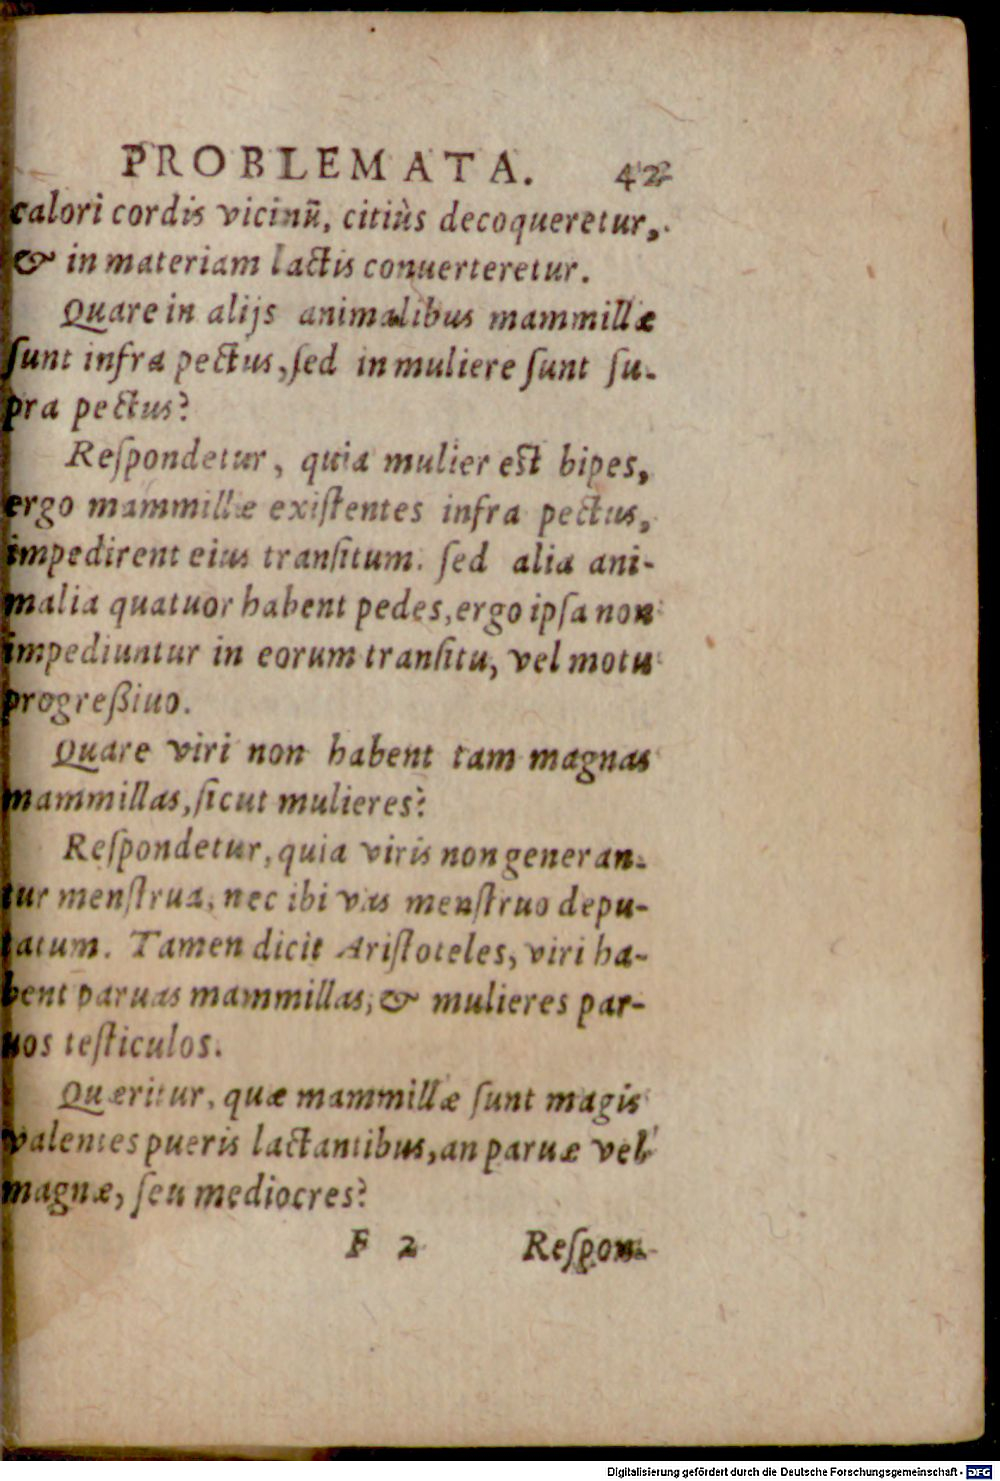 PROBLEMATA. 42
calori cordis vicinũ, citiùs decoqueretur,
& in materiam lactis conuerteretur.
Quare in alijs animalibus mammillæ
ſunt infra pectus, ſed in muliere ſunt ſu-
pra pectus?
Reſpondetur, quia mulier est bipes,
ergo mammillæ exiſtentes infra pectus,
impedirent eius tranſitum. ſed alia ani-
malia quatuor habent pedes, ergo ipſa non
impediuntur in eorum tranſitu, vel motu
progreßiuo.
Quare viri non habent tam magnas
mammillas, ſicut mulieres?
Reſpondetur, quia viris non generan-
tur menſtrua, nec ibi vas menſtruo depu-
tatum. Tamen dicit Ariſtoteles, viri ha-
bent paruas mammillas, & mulieres par-
uos teſticulos.
Quæritur, quæ mammillæ ſunt magis
valentes pueris lactantibus, an paruæ vel
magnæ, ſeu mediocres?
F 2 Reſpon-
Digitalisierung gefördert durch die Deutsche Forschungsgemeinschaft - DFG